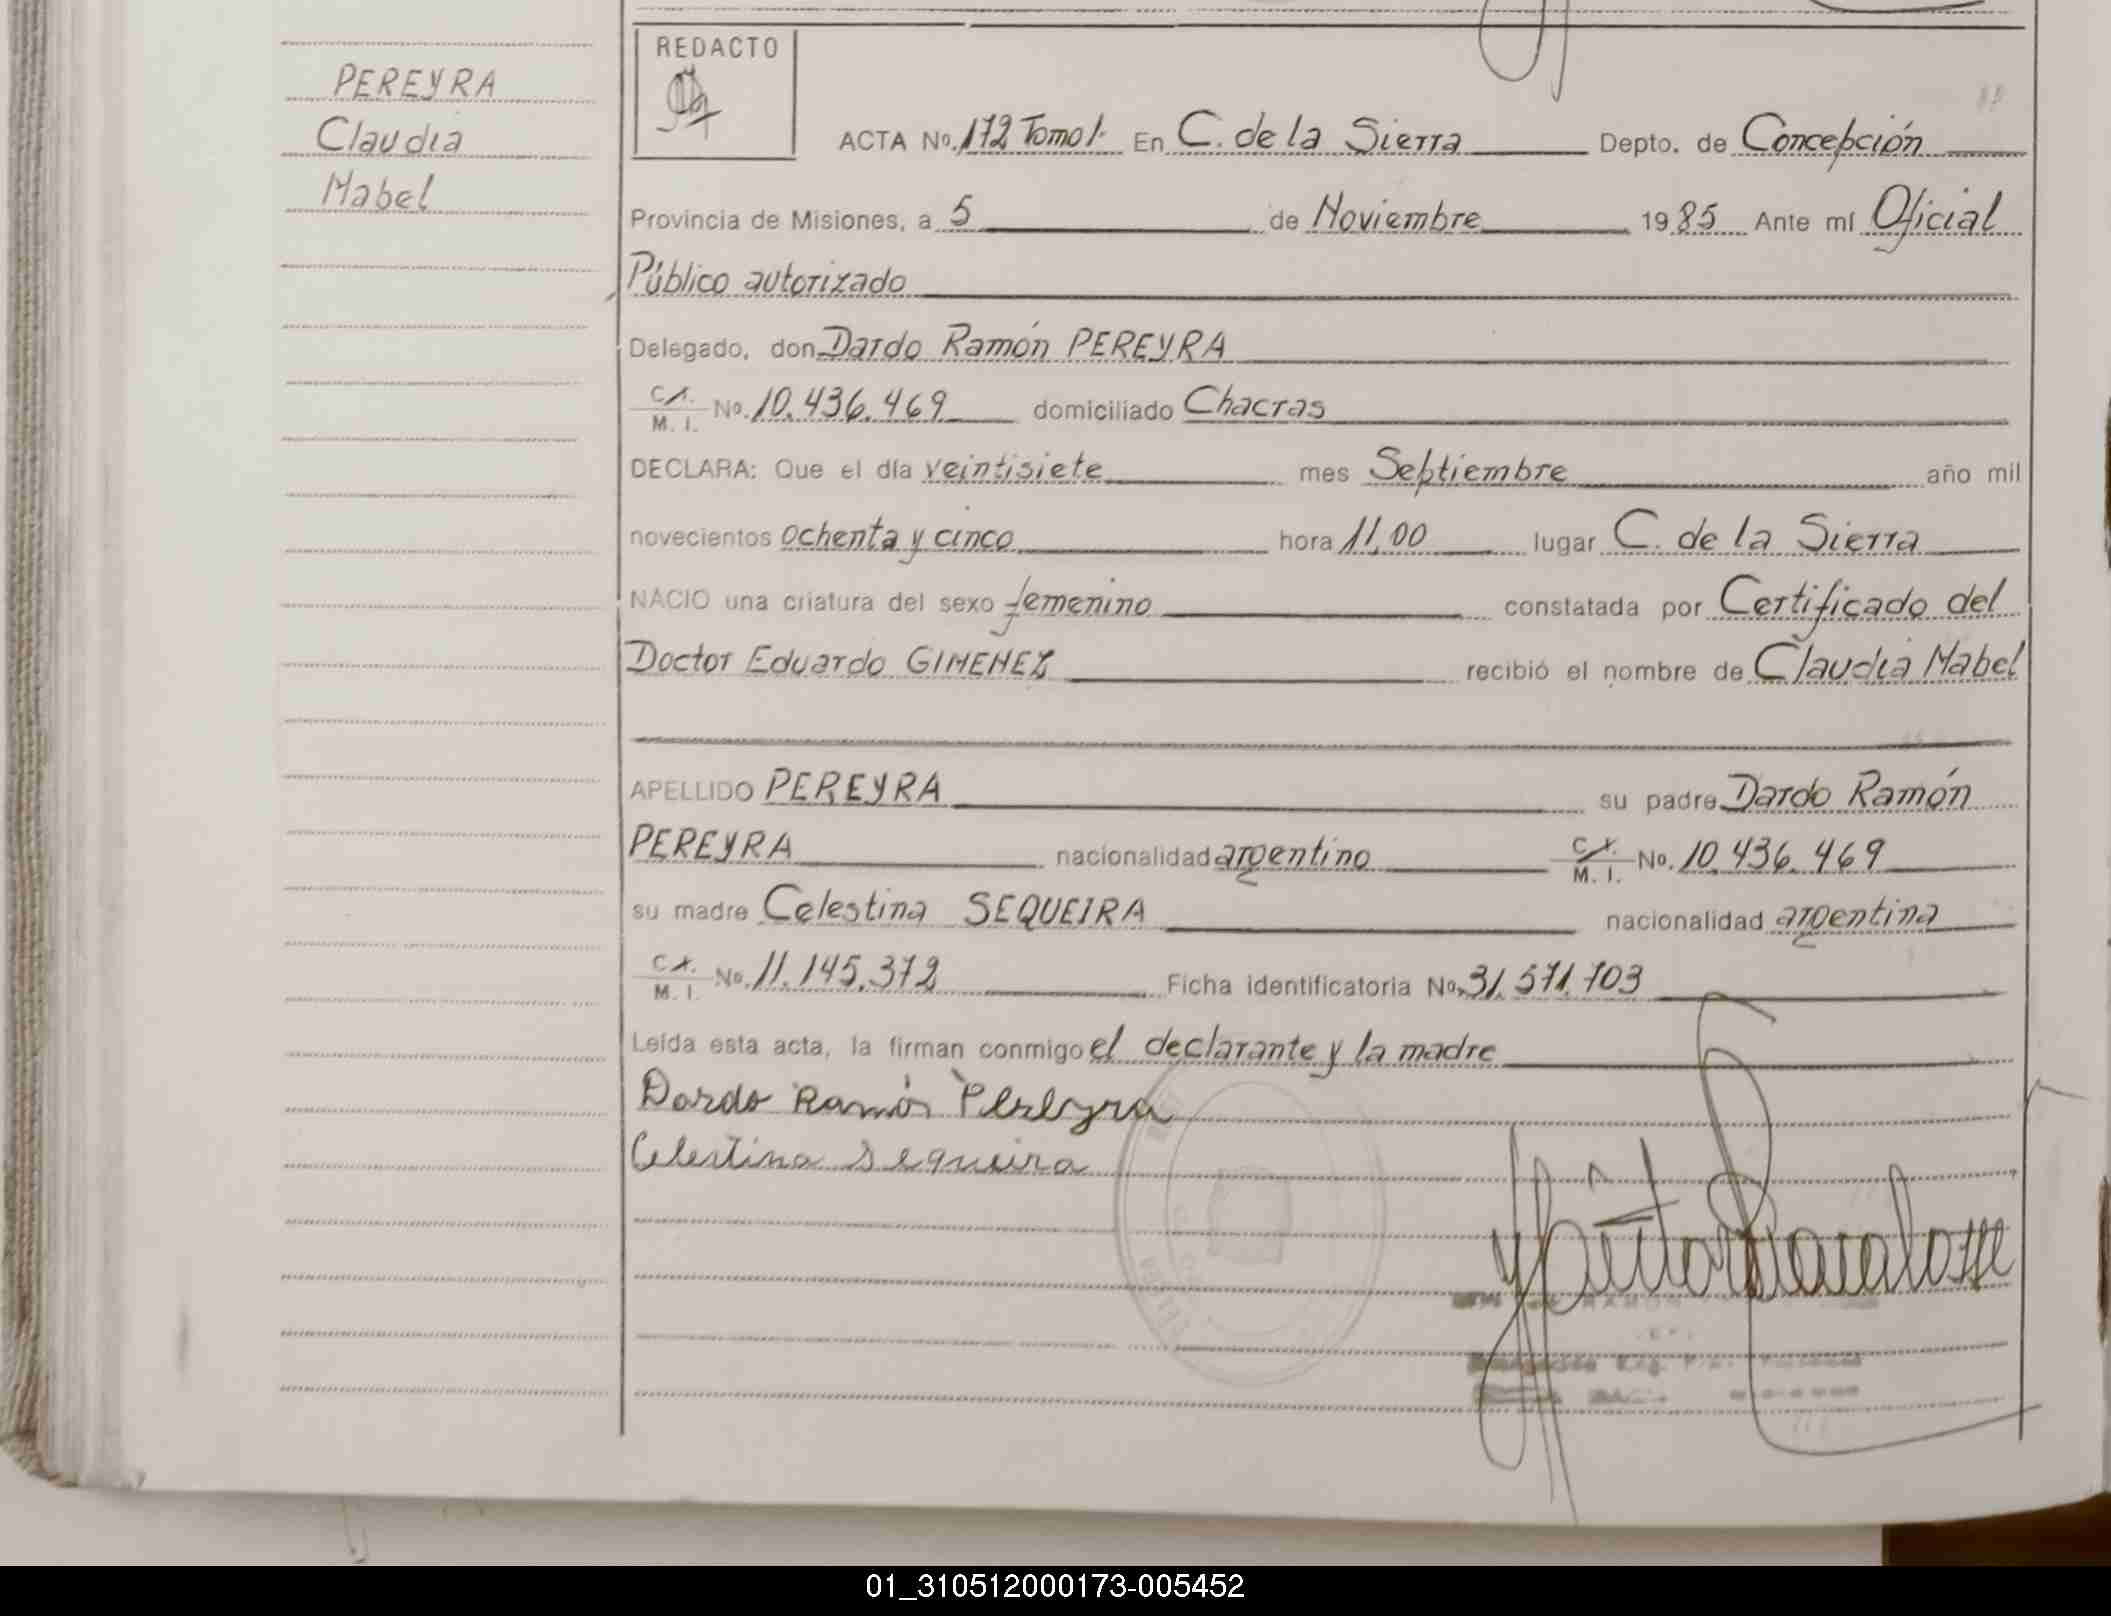 PEREYRA
Claudia
Mabel
REDACTO
ACTA No. 172 Tomo I. En C. de la Sierra Depto. de Concepción
Provincia de Misiones, a 5 de Noviembre 1985 Ante mí Oficial
Público autorizado
Delegado, don Dardo Ramón PEREYRA
C.I. M. I. No. 10.436.469 domiciliado Chacras
DECLARA: Que el día veintisiete mes Septiembre año mil
novecientos ochenta y cinco hora 11,00 lugar C. de la Sierra
NACIO una criatura del sexo femenino constatada por Certificado del
Doctor Eduardo GIMENEZ recibió el nombre de Claudia Mabel
APELLIDO PEREYRA su padre Dardo Ramón
PEREYRA nacionalidad argentino C.I. M. I. No. 10.436.469
su madre Celestina SEQUEIRA nacionalidad argentina
C.I. M. I. No. 11.145.372 Ficha identificatoria No. 31.571.703
Leída esta acta, la firman conmigo el declarante y la madre
Dardo Ramón Pereyra
Celestina Sequeira
RAMON
01_310512000173-005452